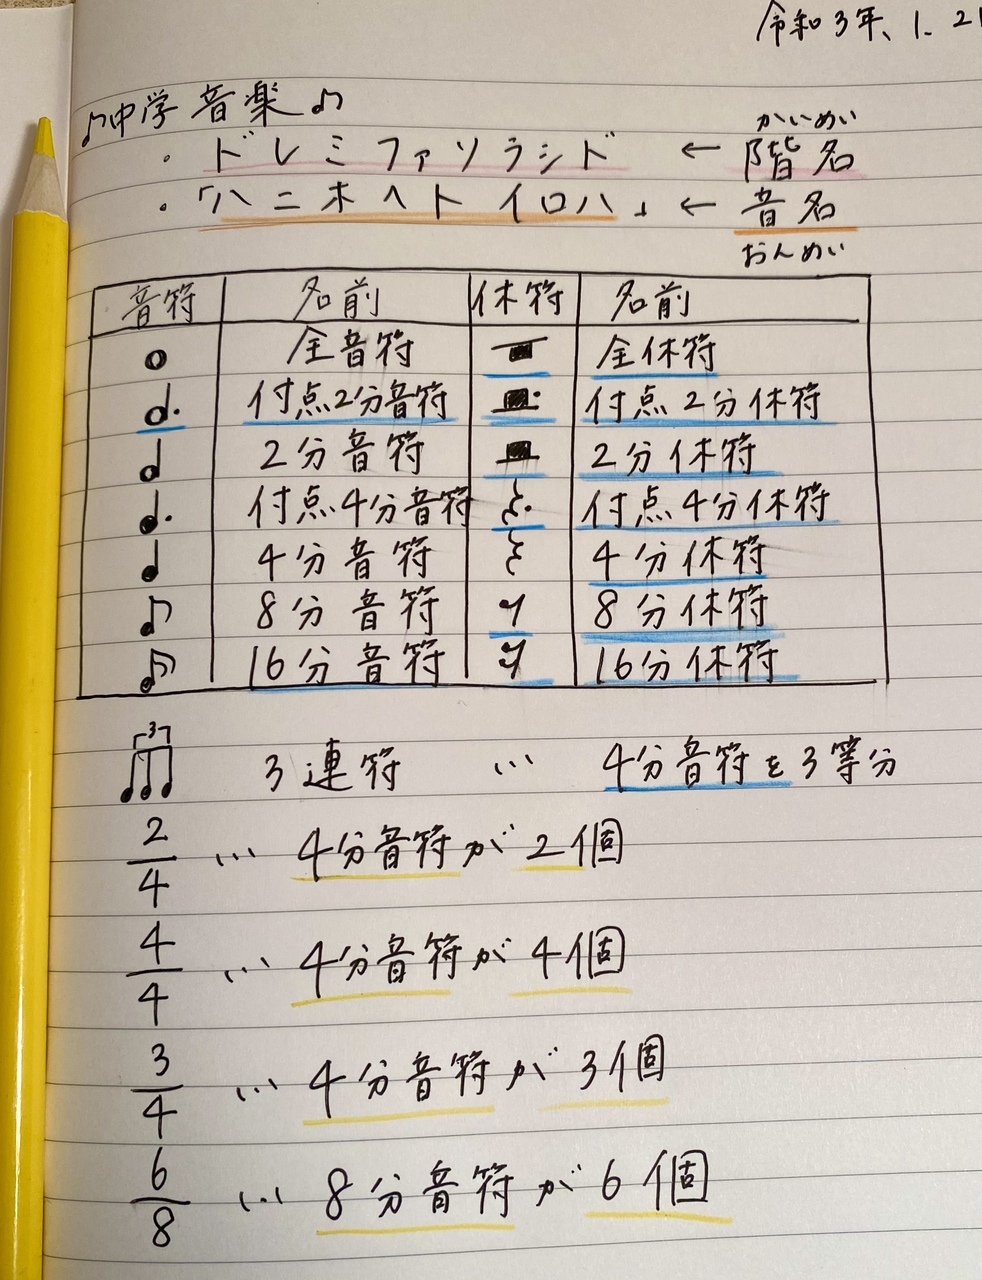 令和3年、1.21
♪中学 音楽♫
かいめい
・ドレミファソラシド ← 階名
・「ハニホヘト イロハ」 ← 音名
おんめい
音符 名前 休符 名前
全音符 全休符
付点2分音符 付点2分休符
2分音符 2分休符
付点4分音符 付点4分休符
4分音符 4分休符
8分音符 8分休符
16分音符 16分休符
3
3連符 … 4分音符を3等分
2/4 … 4分音符が2個
4/4 … 4分音符が4個
3/4 … 4分音符が3個
6/8 … 8分音符が6個